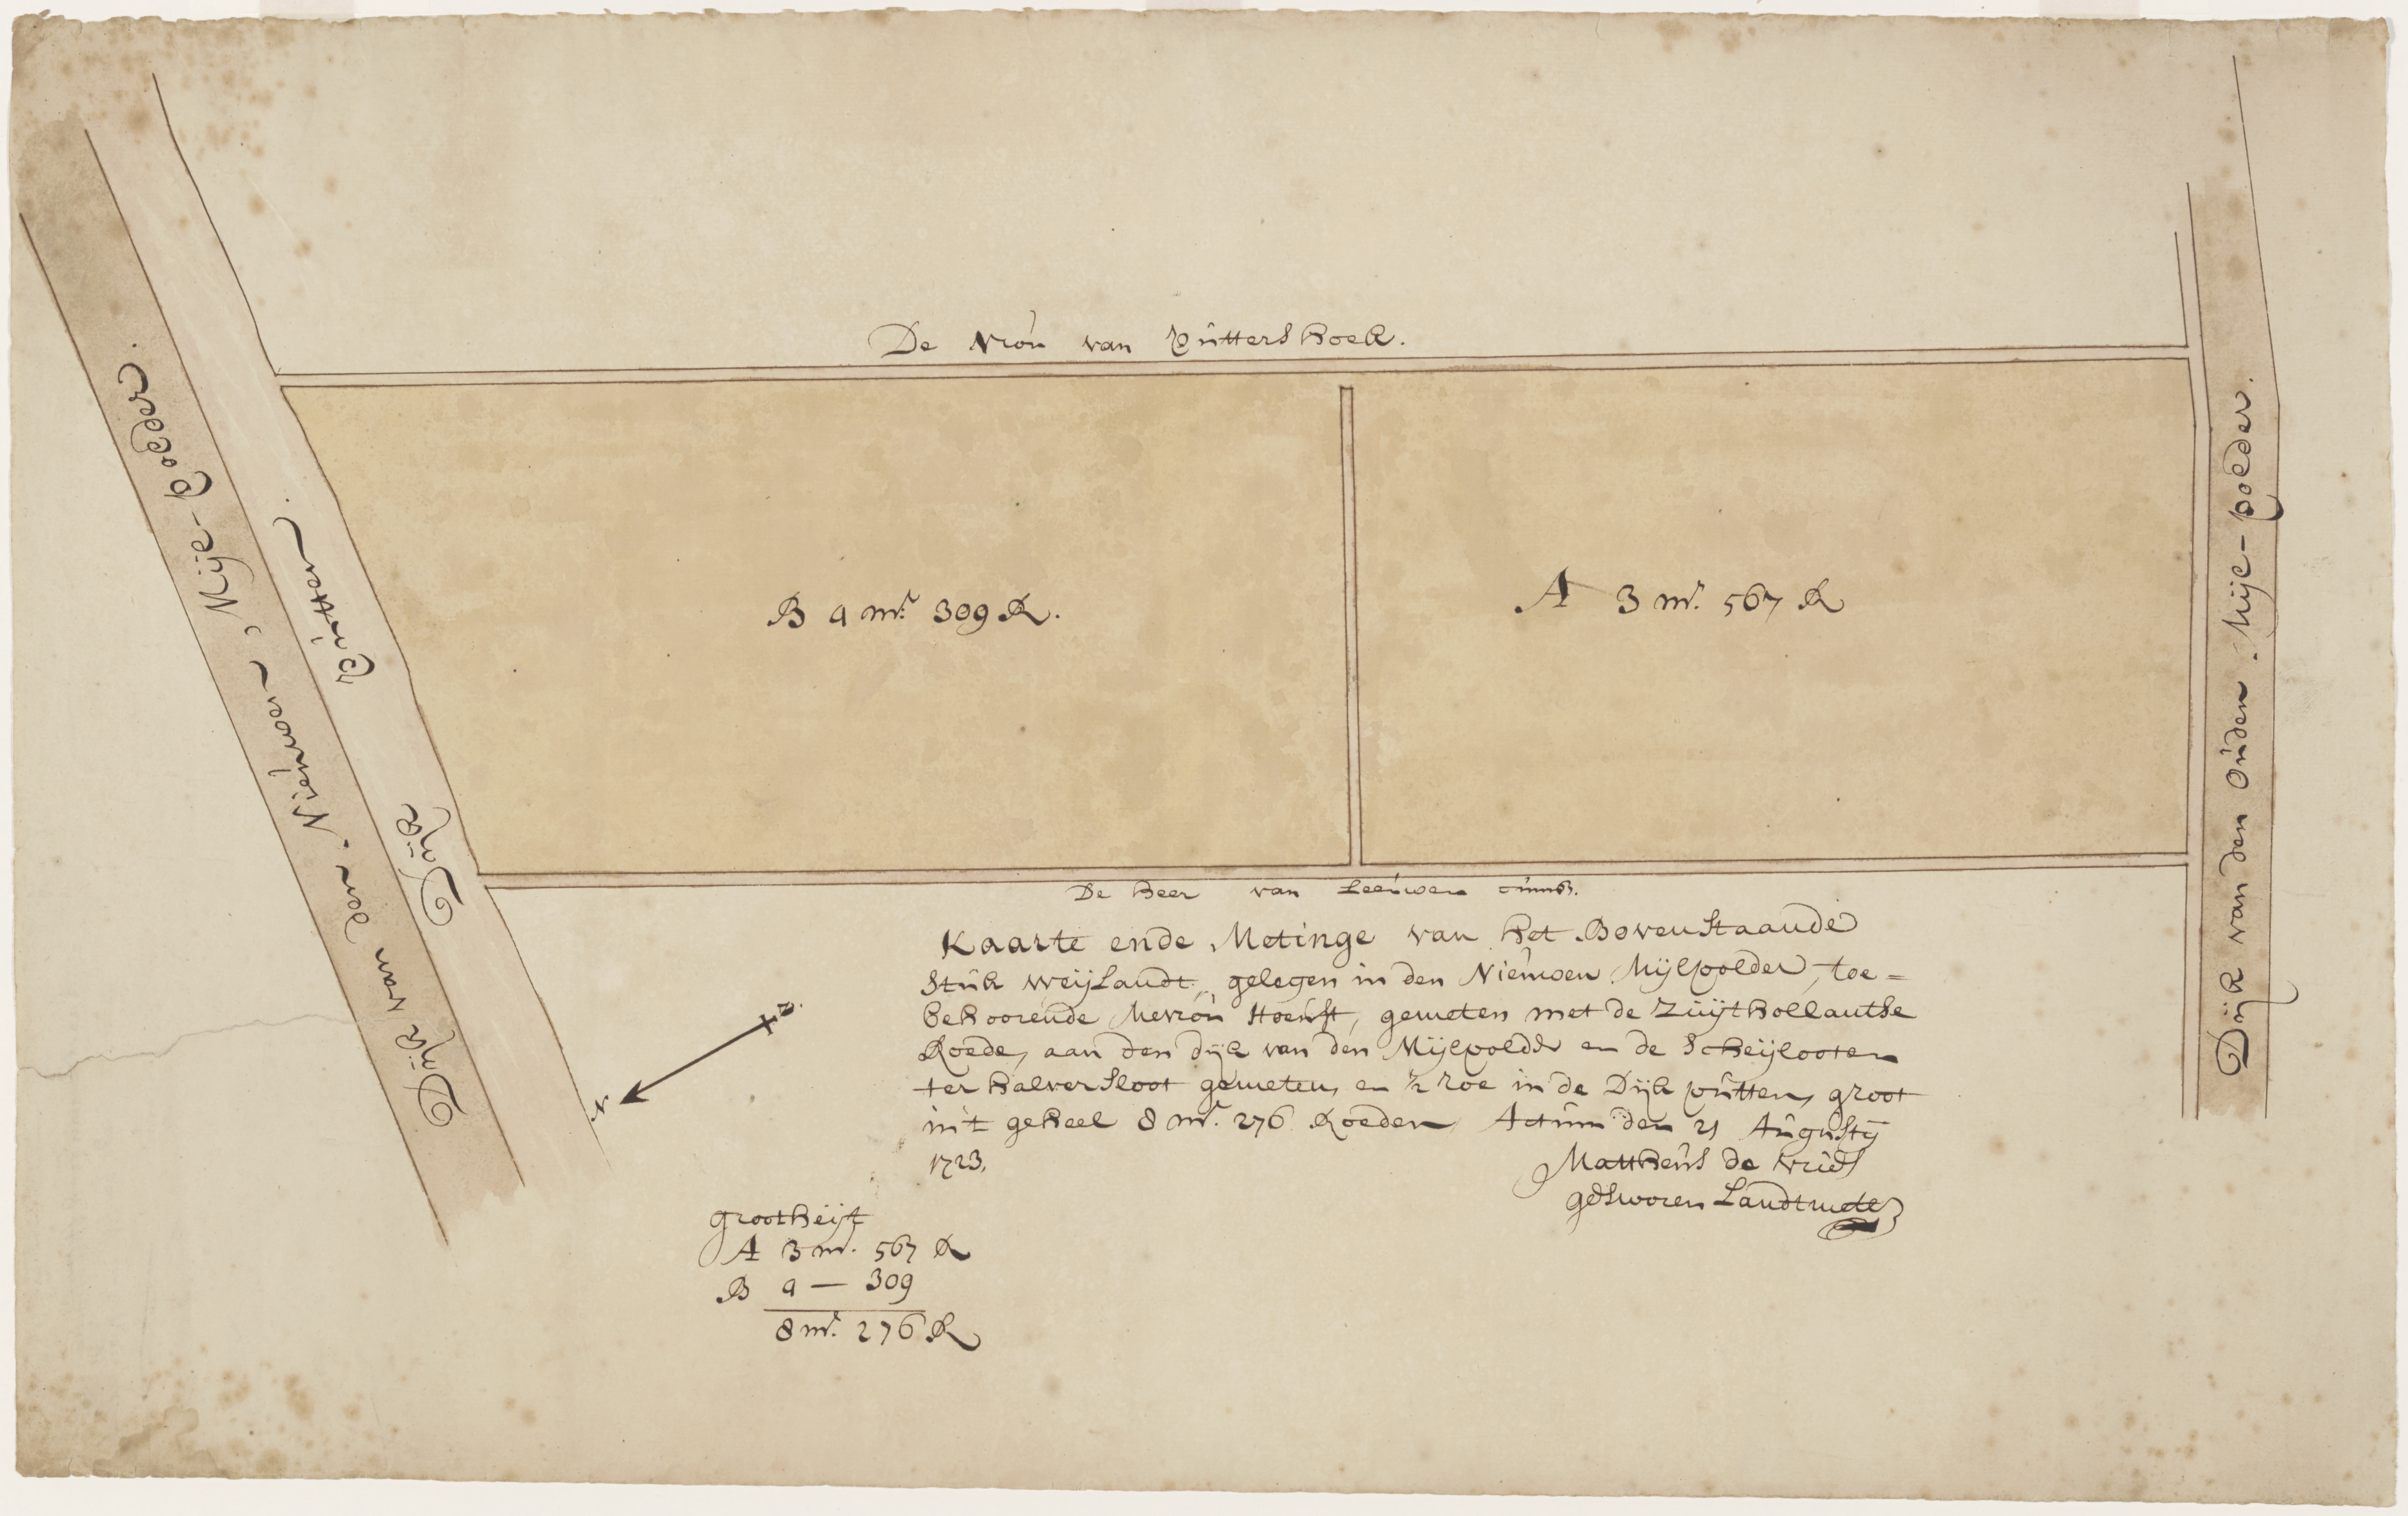 De Vroú van Pútters hoek.
Dijk van den Nieúwen Mijl-Polder.
Dijk Pútten.
B 4 mr. 309 R.
A 3 mr. 567 R
Dijk van den Oúden Mijl-polder.
De heer van Leeúwen
Kaarte ende Metinge van het Bovenstaande
stúk weijlandt, gelegen in den Nieúwen Mijlpolder, toe=
behoorende Mevroú Hoeúft, gemeten met de Zúijthollantse
Roede, aan den dijk van den Mijlpolder en de Scheijslooten
ter halver sloot gemeten, en ½ roe in de Dijk pútten, groot
in't geheel 8 mr. 276 Roeden, Actúm den 21 Aúgústij
1723.
Mattheús de Vries
gesworen Landtmeter
N
Z.
grootheijt
A 3 mr. 567 R
B 4 — 309
8 mr. 276 R